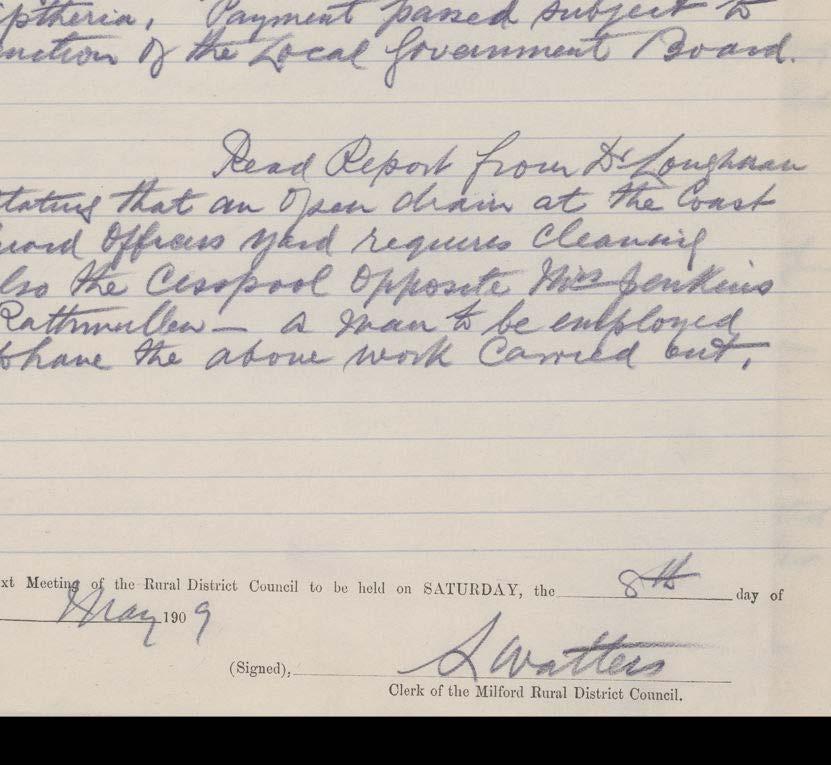 iptheria, Payment passed subject to
nction of the Local Government Board.
Read Report from Dr Loughnan
tating that an open drain at the Coast
uard Officers yard requires cleaning
lso the Cesspool opposite Mrs Jenkins
Rathmullen — a man to be employed
to have the above work carried out.
xt Meeting of the Rural District Council to be held on SATURDAY, the 8th day of
May 1909
(Signed), S Watters
Clerk of the Milford Rural District Council.